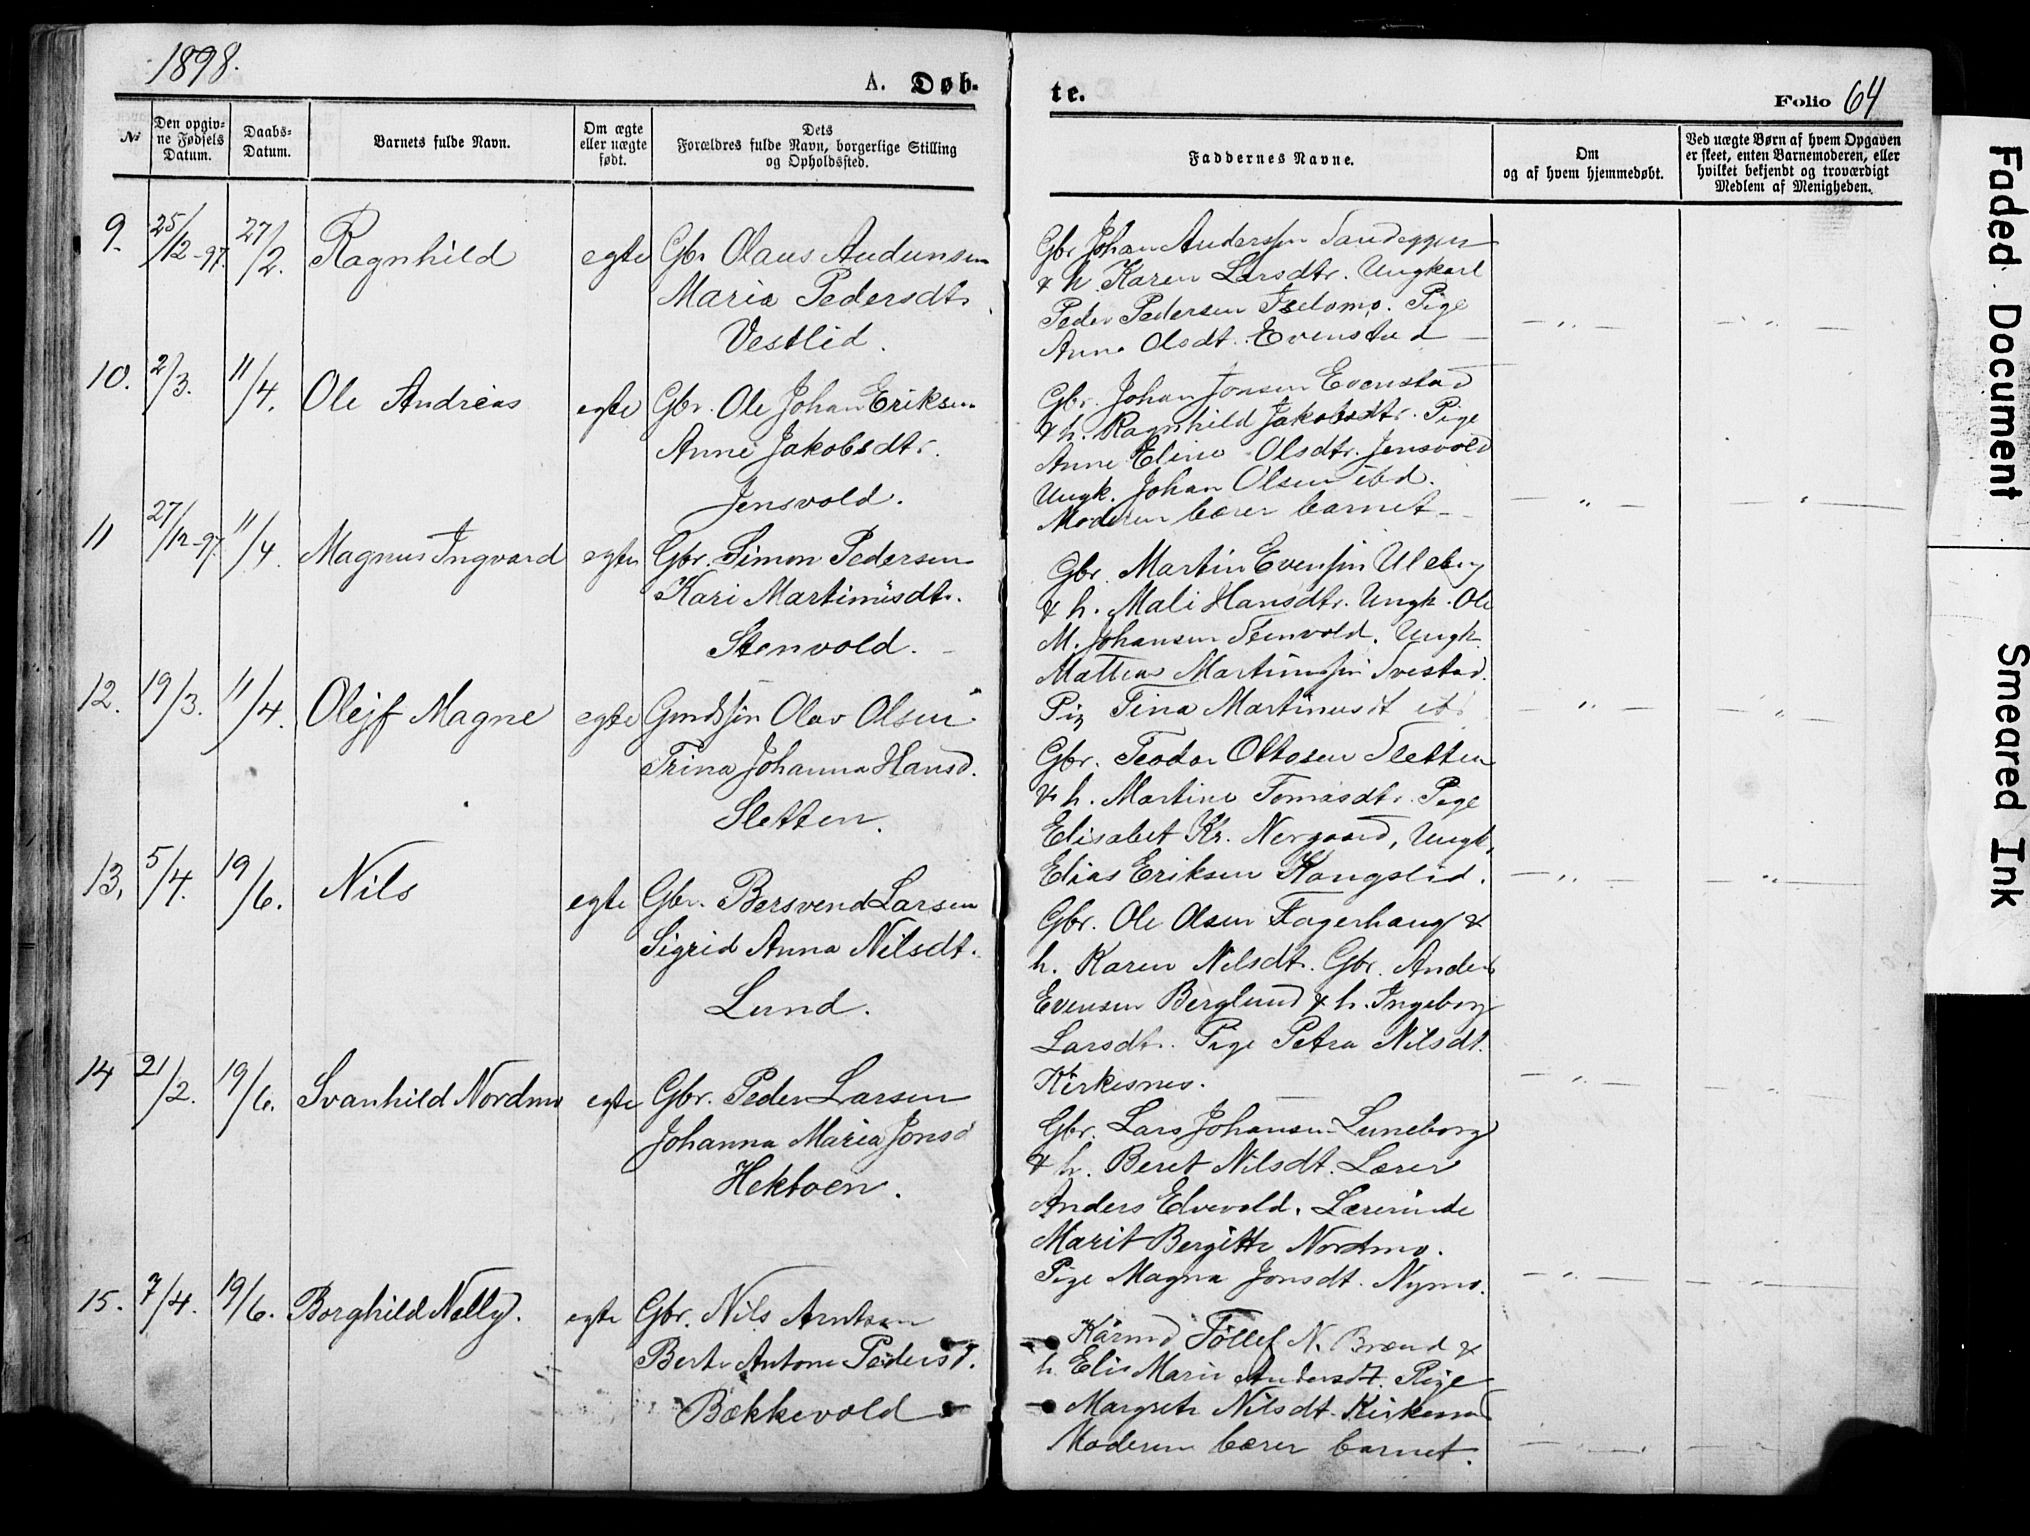 1898.
A. Døb-
te.
Folio 64
№
Den opgiv-
ne Fødsels
Datum.
Daabs-
Datum.
Barnets fulde Navn.
Om ægte
eller uægte
født.
Dets
Forældres fulde Navn, borgerlige Stilling
og Opholdssted.
Faddernes Navne.
Om
og af hvem hjemmedøbt.
Ved uægte Børn af hvem Opgaven
er skeet, enten Barnemoderen, eller
hvilket bekjendt og troværdigt
Medlem af Menigheden.
9. 25/12-97. 27/2. Ragnhild egte Gbr Olaus Audunsen
Maria Pedersdt.
Vestlid.
Gbr Johan Anderssen Sandeggen
& h. Karen Larsdtr. Ungkarl
Peder Pedersen Pige
Anne Olsdt. Evenstad
10. 2/3. 11/4. Ole Andreas egte Gbr. Ole Johan Eriksen
Anne Jakobsdtr.
Jensvold.
Gbr. Johan Jonsen Evenstad
& h. Ragnhild Jakobsdtr. Pige
Anne Eline Olsdtr. Jensvold
Ungk. Johan Olsen ibd.
Moderen bærer barnet
11 27/12-97 11/4. Magnus Ingvard egte Gbr. Simon Pedersen
Kari Martinusdt.
Stenvold.
Gbr. Martin Evensen Uleberg
& h. Mali Hansdtr. Ungk. Ole
M. Johansen Stenvold. Ungk.
Martinussen
Tina Martinusdt
12. 19/3. 11/4. Olejf Magne egte Gmdssøn Olav Olsen
Trina Johanna Hansd.
Sletten.
Gbr. Teodor Ottosen Sletten
& h. Martine Tomasdtr. Pige
Elisabet Kr. Nergaard, Ungk.
Elias Eriksen Kongslid.
13, 5/4. 19/6. Nils egte Gbr. Bersvend Larsen
Sigrid Anna Nilsdt.
Lund.
Gbr. Ole Olsen Fagerhaug &
h. Karen Nilsdt. Gbr. Anders
Evensen Berglund & h. Ingeborg
Larsdtr. Pige Petra Nilsdt.
Kirkesnes.
14 21/2. 19/6. Svanhild Nordmo egte Gbr. Peder Larsen
Johanna Maria Jonsd
Hektoen.
Gbr. Lars Johansen Luneborg
& h. Beret Nilsdt. Lærer
Anders Elvevold. Lærerinde
Marit Bergitte Nordmo.
Pige Magna Jonsdt. Nymo.
15. 7/4. 19/6. Borghild Nelly. egte Gbr. Nils Arntsen
Berte Antone Pedersd.
Bækkevold
Kårmd Tollef N. Brænd &
h. Elis Marie Andersdt. Pige
Margrete Nilsdt Kirkesnes
Moderen bærer barnet.
Faded Document
Smeared Ink